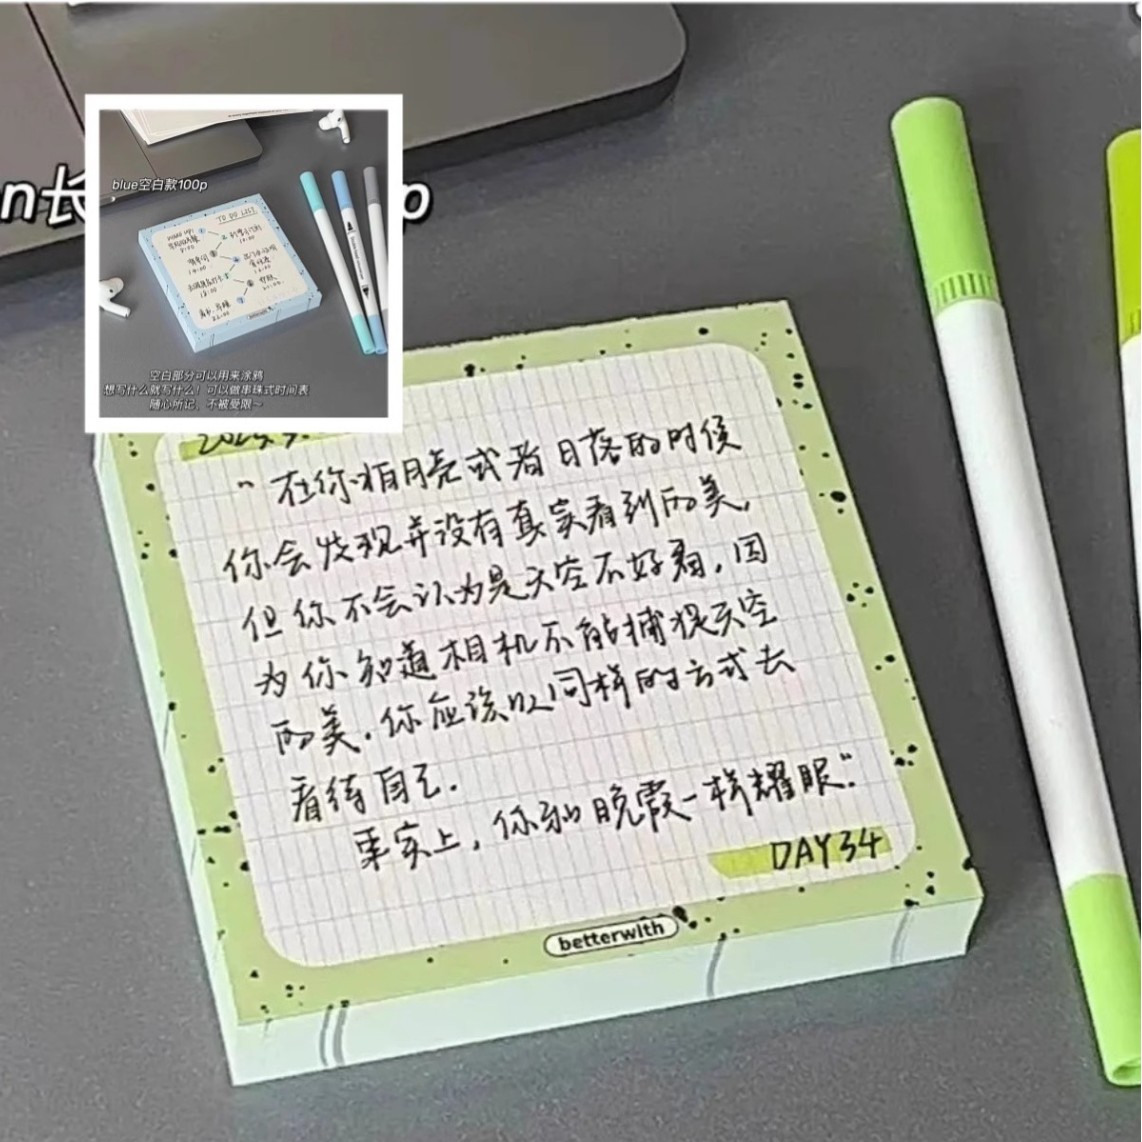 n长
p
blue空白款100p
TO DO LIST
空白部分可以用来涂鸦
想写什么就写什么！可以做串珠式时间表
随心所记，不被受限~
“在你拍月亮或者日落的时候
你会发现并没有真实看到的美，
但你不会认为是天空不好看，因
为你知道相机不能捕捉天空
的美，你应该以同样的方式去
看待自己.
事实上，你和晚霞一样耀眼.”
DAY34
betterwith